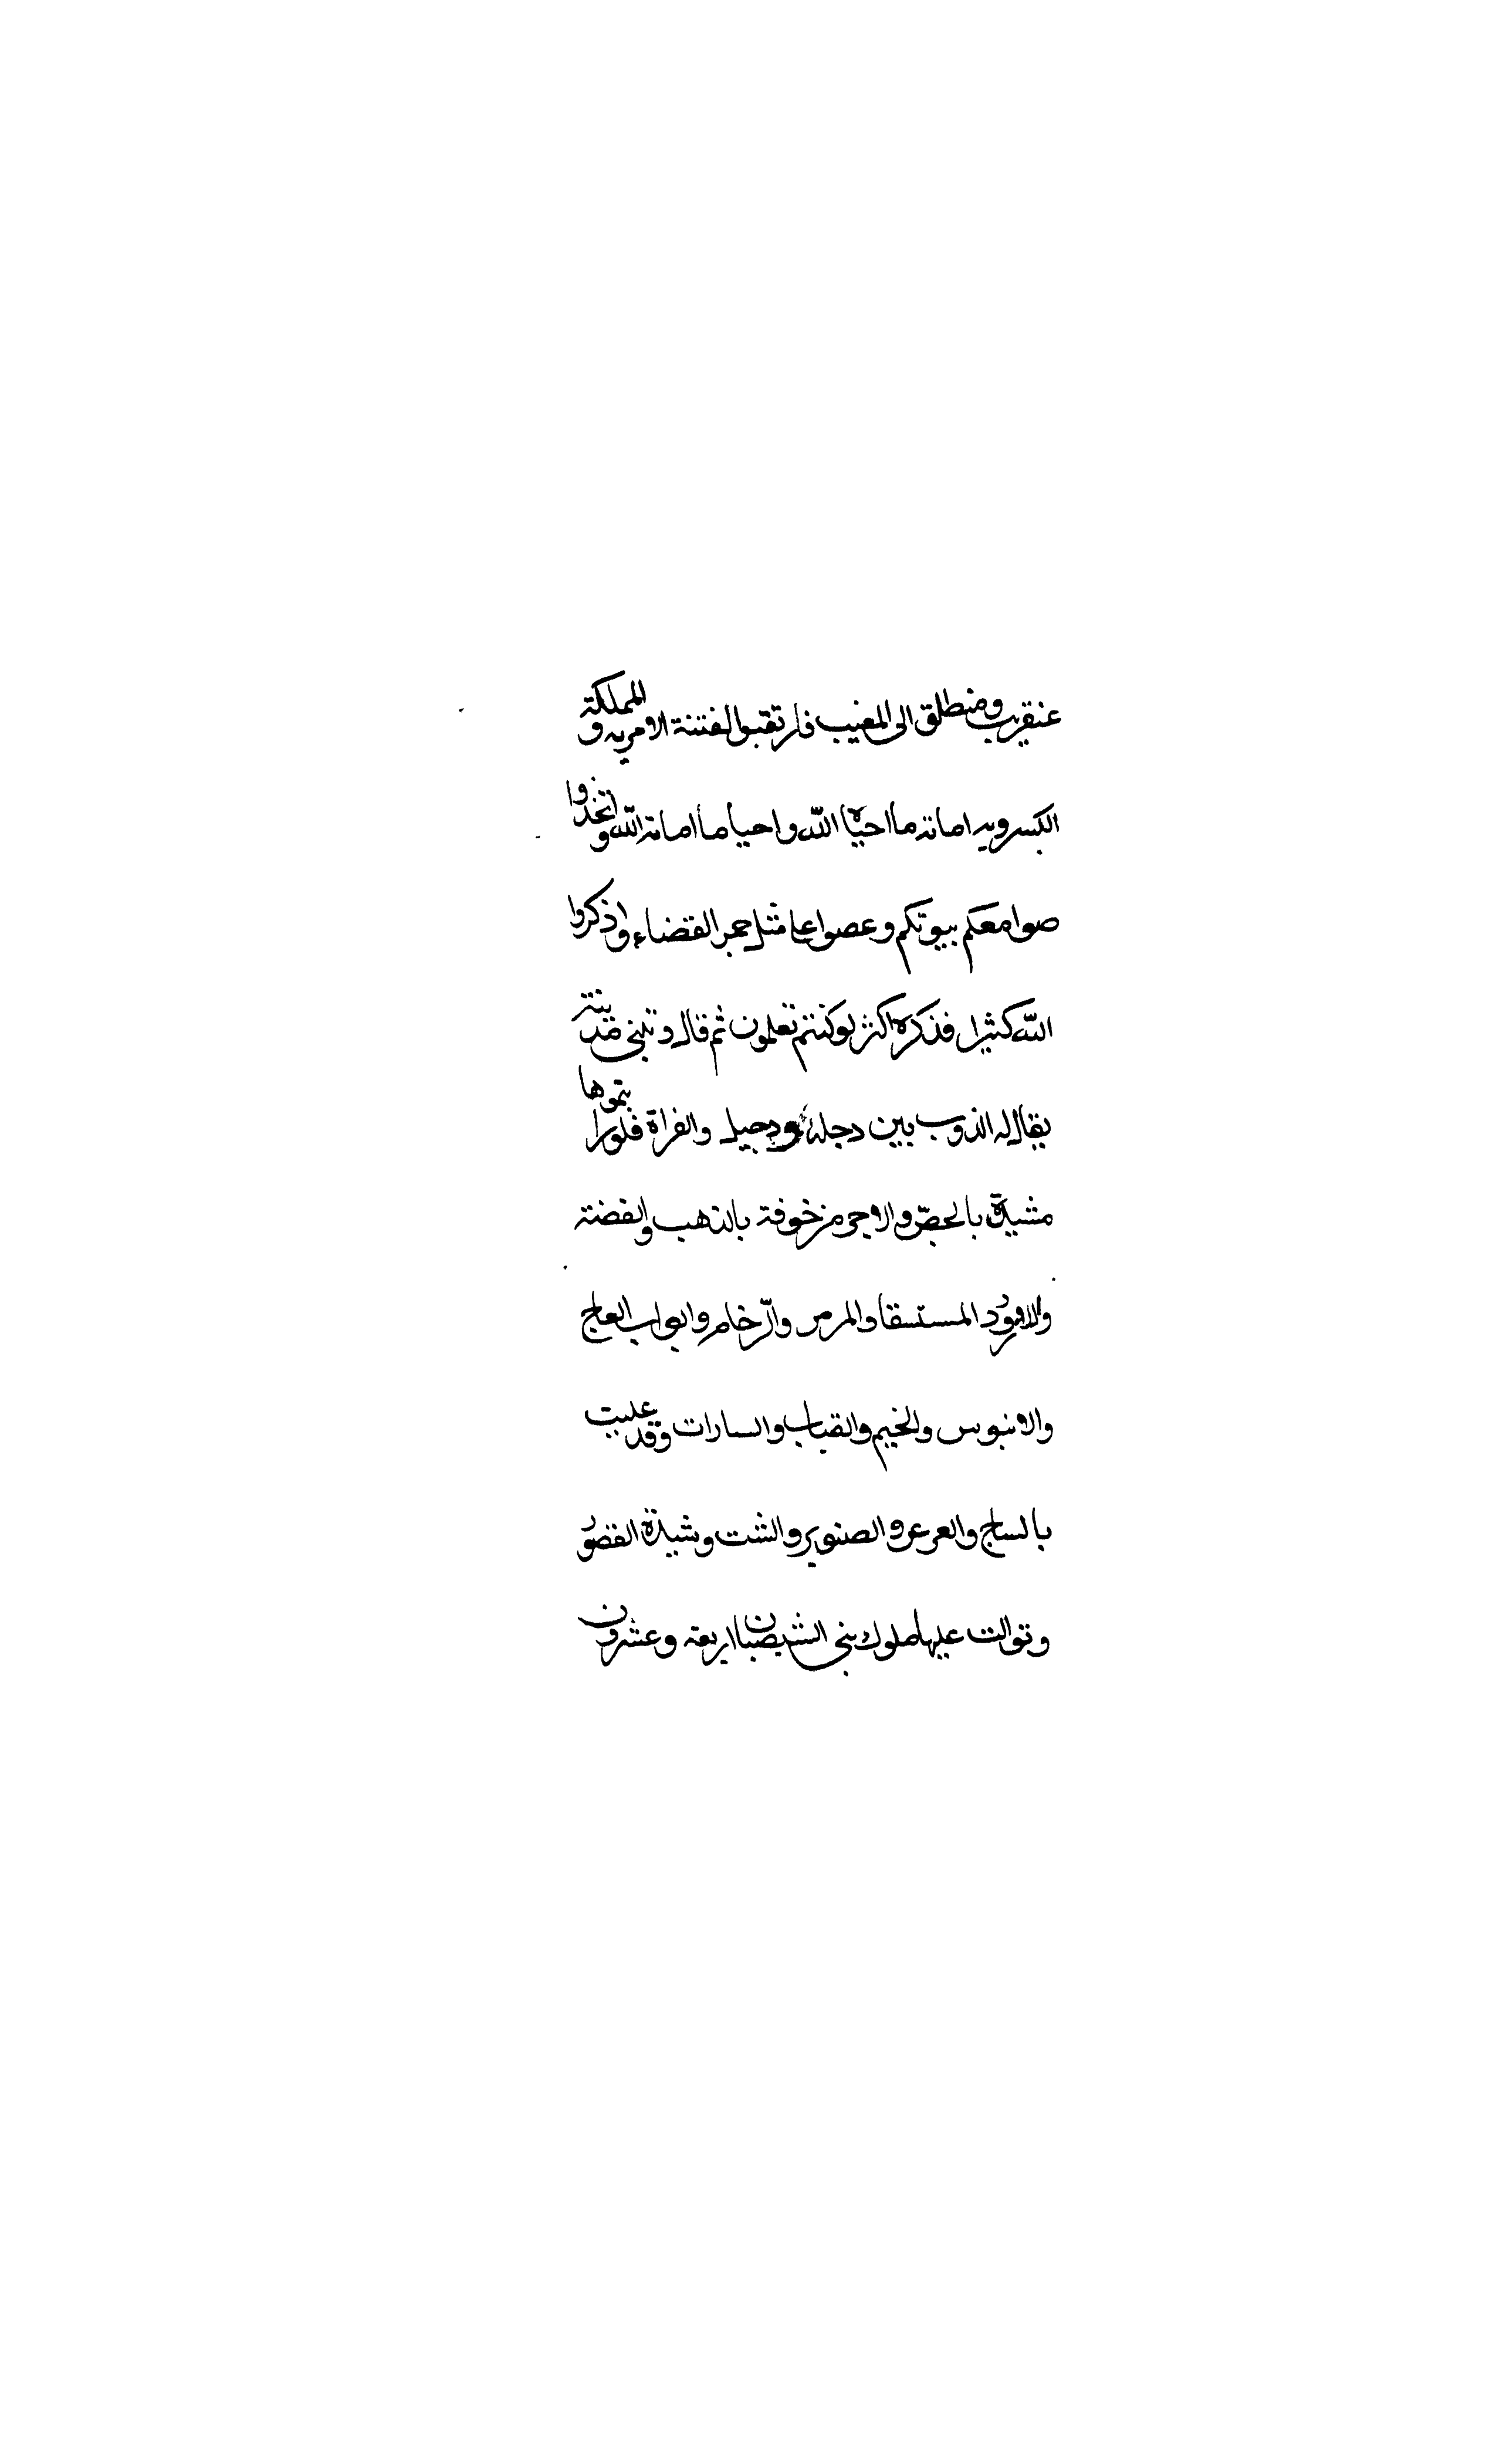 عنقريب ومنطلق الى المغيب فارتقبوا لفتنة الاموية والمملكة
الكسروية اماتة ما احياه الله واحيا ما اماته الله واتخذوا
صوامعكم بيوتكم وعضوا عا مثل جمر الغضاء واذكروا
الله كثيرا فذكره اكثر لو كنتم تعلمون ثم قال وتبنى مدينة
يقال له الزوب بين دجلة ودجيل والفراة فلو رايتموها
مشيدة بالجص والاجر مزخرفة بالذهب والفضة
المستسقا والمرمر والرّخام وابواب العاج
والابنوس والخيم والقباب والسارات وقد عليت
بالساج والعرعر والصنوبر والشت وشيدة القصور
وتوالت عليها ملوك بنى الشيصبان اربعة وعشرون